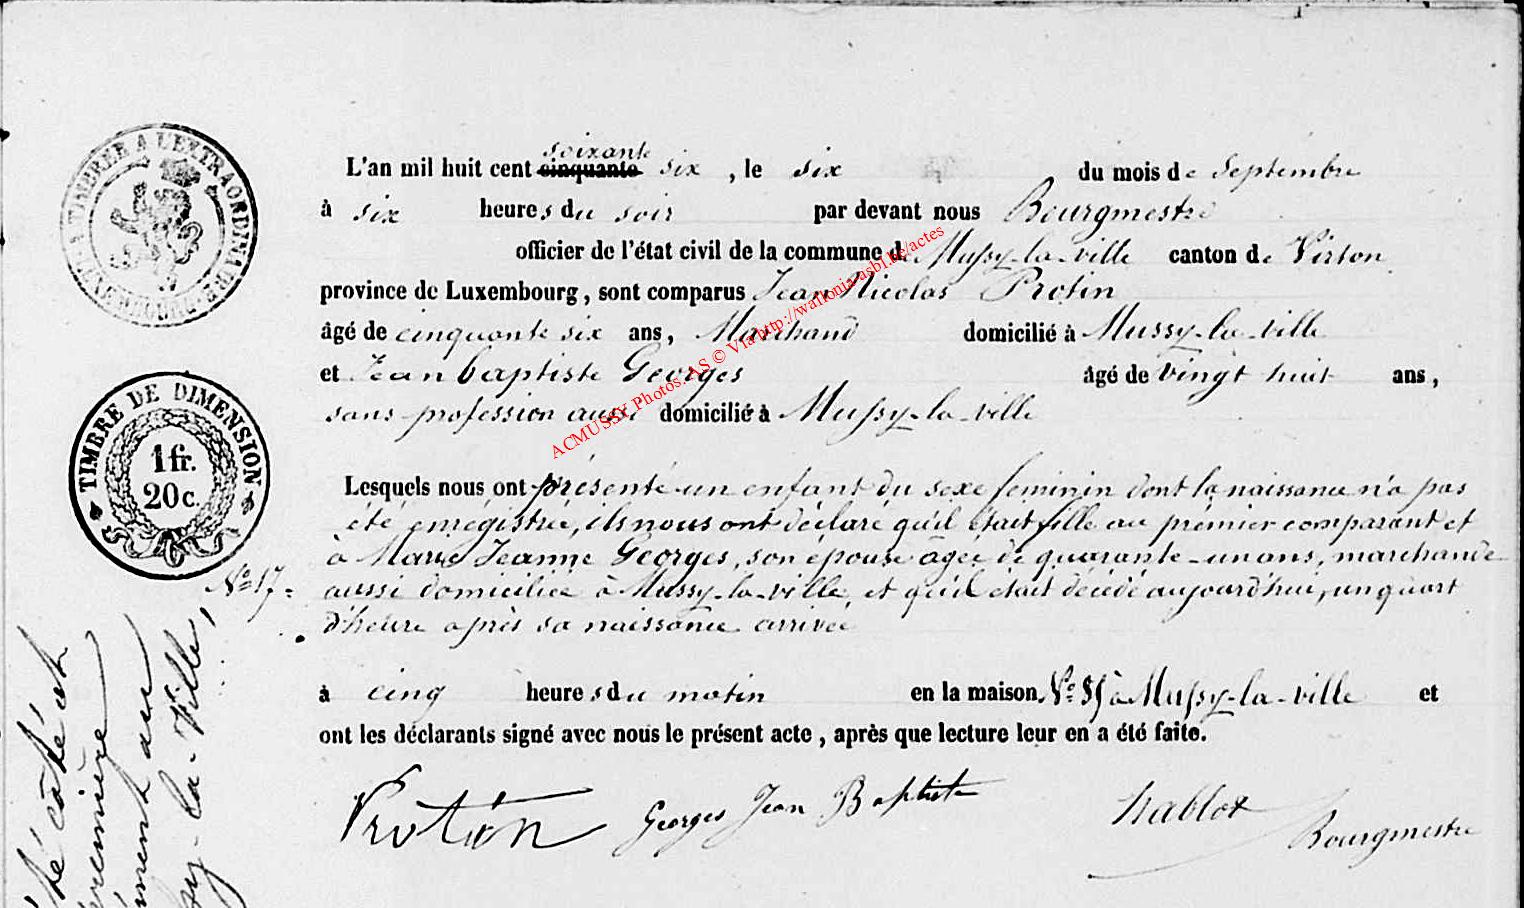 TIMBRÉE A L'EXTRAORDINAIRE
soixante
L'an mil huit cent cinquante six , le six du mois de Septembre
à six heures du soir par devant nous Bourgmestre
officier de l'état civil de la commune de Mussy-la-ville canton de Virton
province de Luxembourg, sont comparus Jean Nicolas Protin
âgé de cinquante six ans, Marchand domicilié à Mussy-la-ville
et Jean baptiste Georges âgé de vingt huit ans,
sans profession aussi domicilié à Mussy-la-ville
ACMUSSY Photos. AS © Via http://wallonia-asbl.be/actes
TIMBRE DE DIMENSION
1 fr.
20 c.
Lesquels nous ont présenté un enfant du sexe féminin dont la naissance n'a pas
été enrégistrée, ils nous ont déclaré qu'il était fille au prémier comparant et
à Marie Jeanne Georges, son épouse âgée de quarante-un ans, marchande
No 17.
aussi domiciliée à Mussy-la-ville, et qu'il était décédé aujourd'hui, un quart
d'heure après sa naissance arrivée
à cinq heures du matin en la maison No à Mussy-la-ville et
ont les déclarants signé avec nous le présent acte, après que lecture leur en a été faite.
Protin Georges Jean Baptiste Hablot
Bourgmestre
côté
la-Ville,